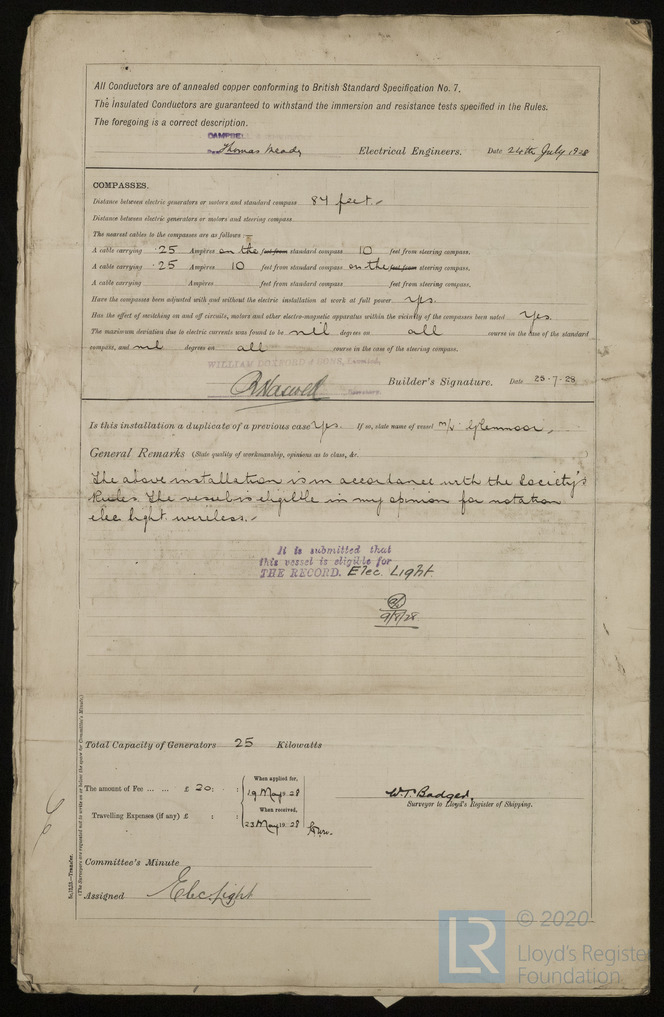 All Conductors are of annealed copper conforming to British Standard Specification No. 7.
The Insulated Conductors are guaranteed to withstand the immersion and resistance tests specified in the Rules.
The foregoing is a correct description.
CAMPBELL
Thomas Meads Electrical Engineers. Date 24th July 1928
COMPASSES.
Distance between electric generators or motors and standard compass 84 feet.
Distance between electric generators or motors and steering compass
The nearest cables to the compasses are as follows:—
A cable carrying .25 Ampères on the feet from standard compass 10 feet from steering compass.
A cable carrying .25 Ampères 10 feet from standard compass on the feet from steering compass.
A cable carrying Ampères feet from standard compass feet from steering compass.
Have the compasses been adjusted with and without the electric installation at work at full power yes.
Has the effect of switching on and off circuits, motors and other electro-magnetic apparatus within the vicinity of the compasses been noted yes
The maximum deviation due to electric currents was found to be nil degrees on all course in the case of the standard
compass, and nil degrees on all course in the case of the steering compass.
WILLIAM DOXFORD & SONS, Limited,
Builder's Signature. Date 25-7-28
Is this installation a duplicate of a previous case yes. If so, state name of vessel m/v Glenmoor.
General Remarks (State quality of workmanship, opinions as to class, &c.
The above installation is in accordance with the Society's
Rules. The vessel is eligible in my opinion for notation
elec light. wireless.-
It is submitted that
this vessel is eligible for
THE RECORD. Elec. Light.
9/8/28
Total Capacity of Generators 25 Kilowatts
The amount of Fee ... ... £ 20 : :
When applied for,
19 May 19 28
When received,
Travelling Expenses (if any) £ : :
23 May 19 28
W.T. Badger.
Surveyor to Lloyd's Register of Shipping.
Committee's Minute
Assigned Elec. Light
(The Surveyors are requested not to write on or below the space for Committee's Minute.)
LR
© 2020
Lloyd's Register
Foundation